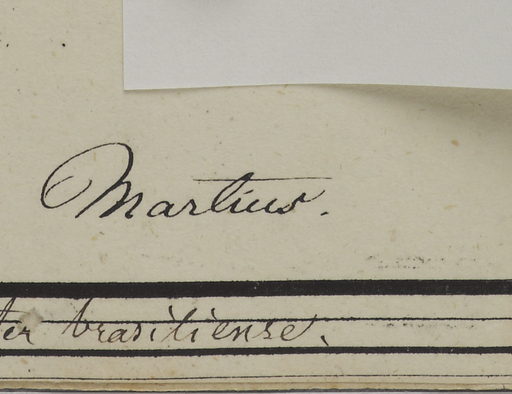 Martius.
ter brasiliense.